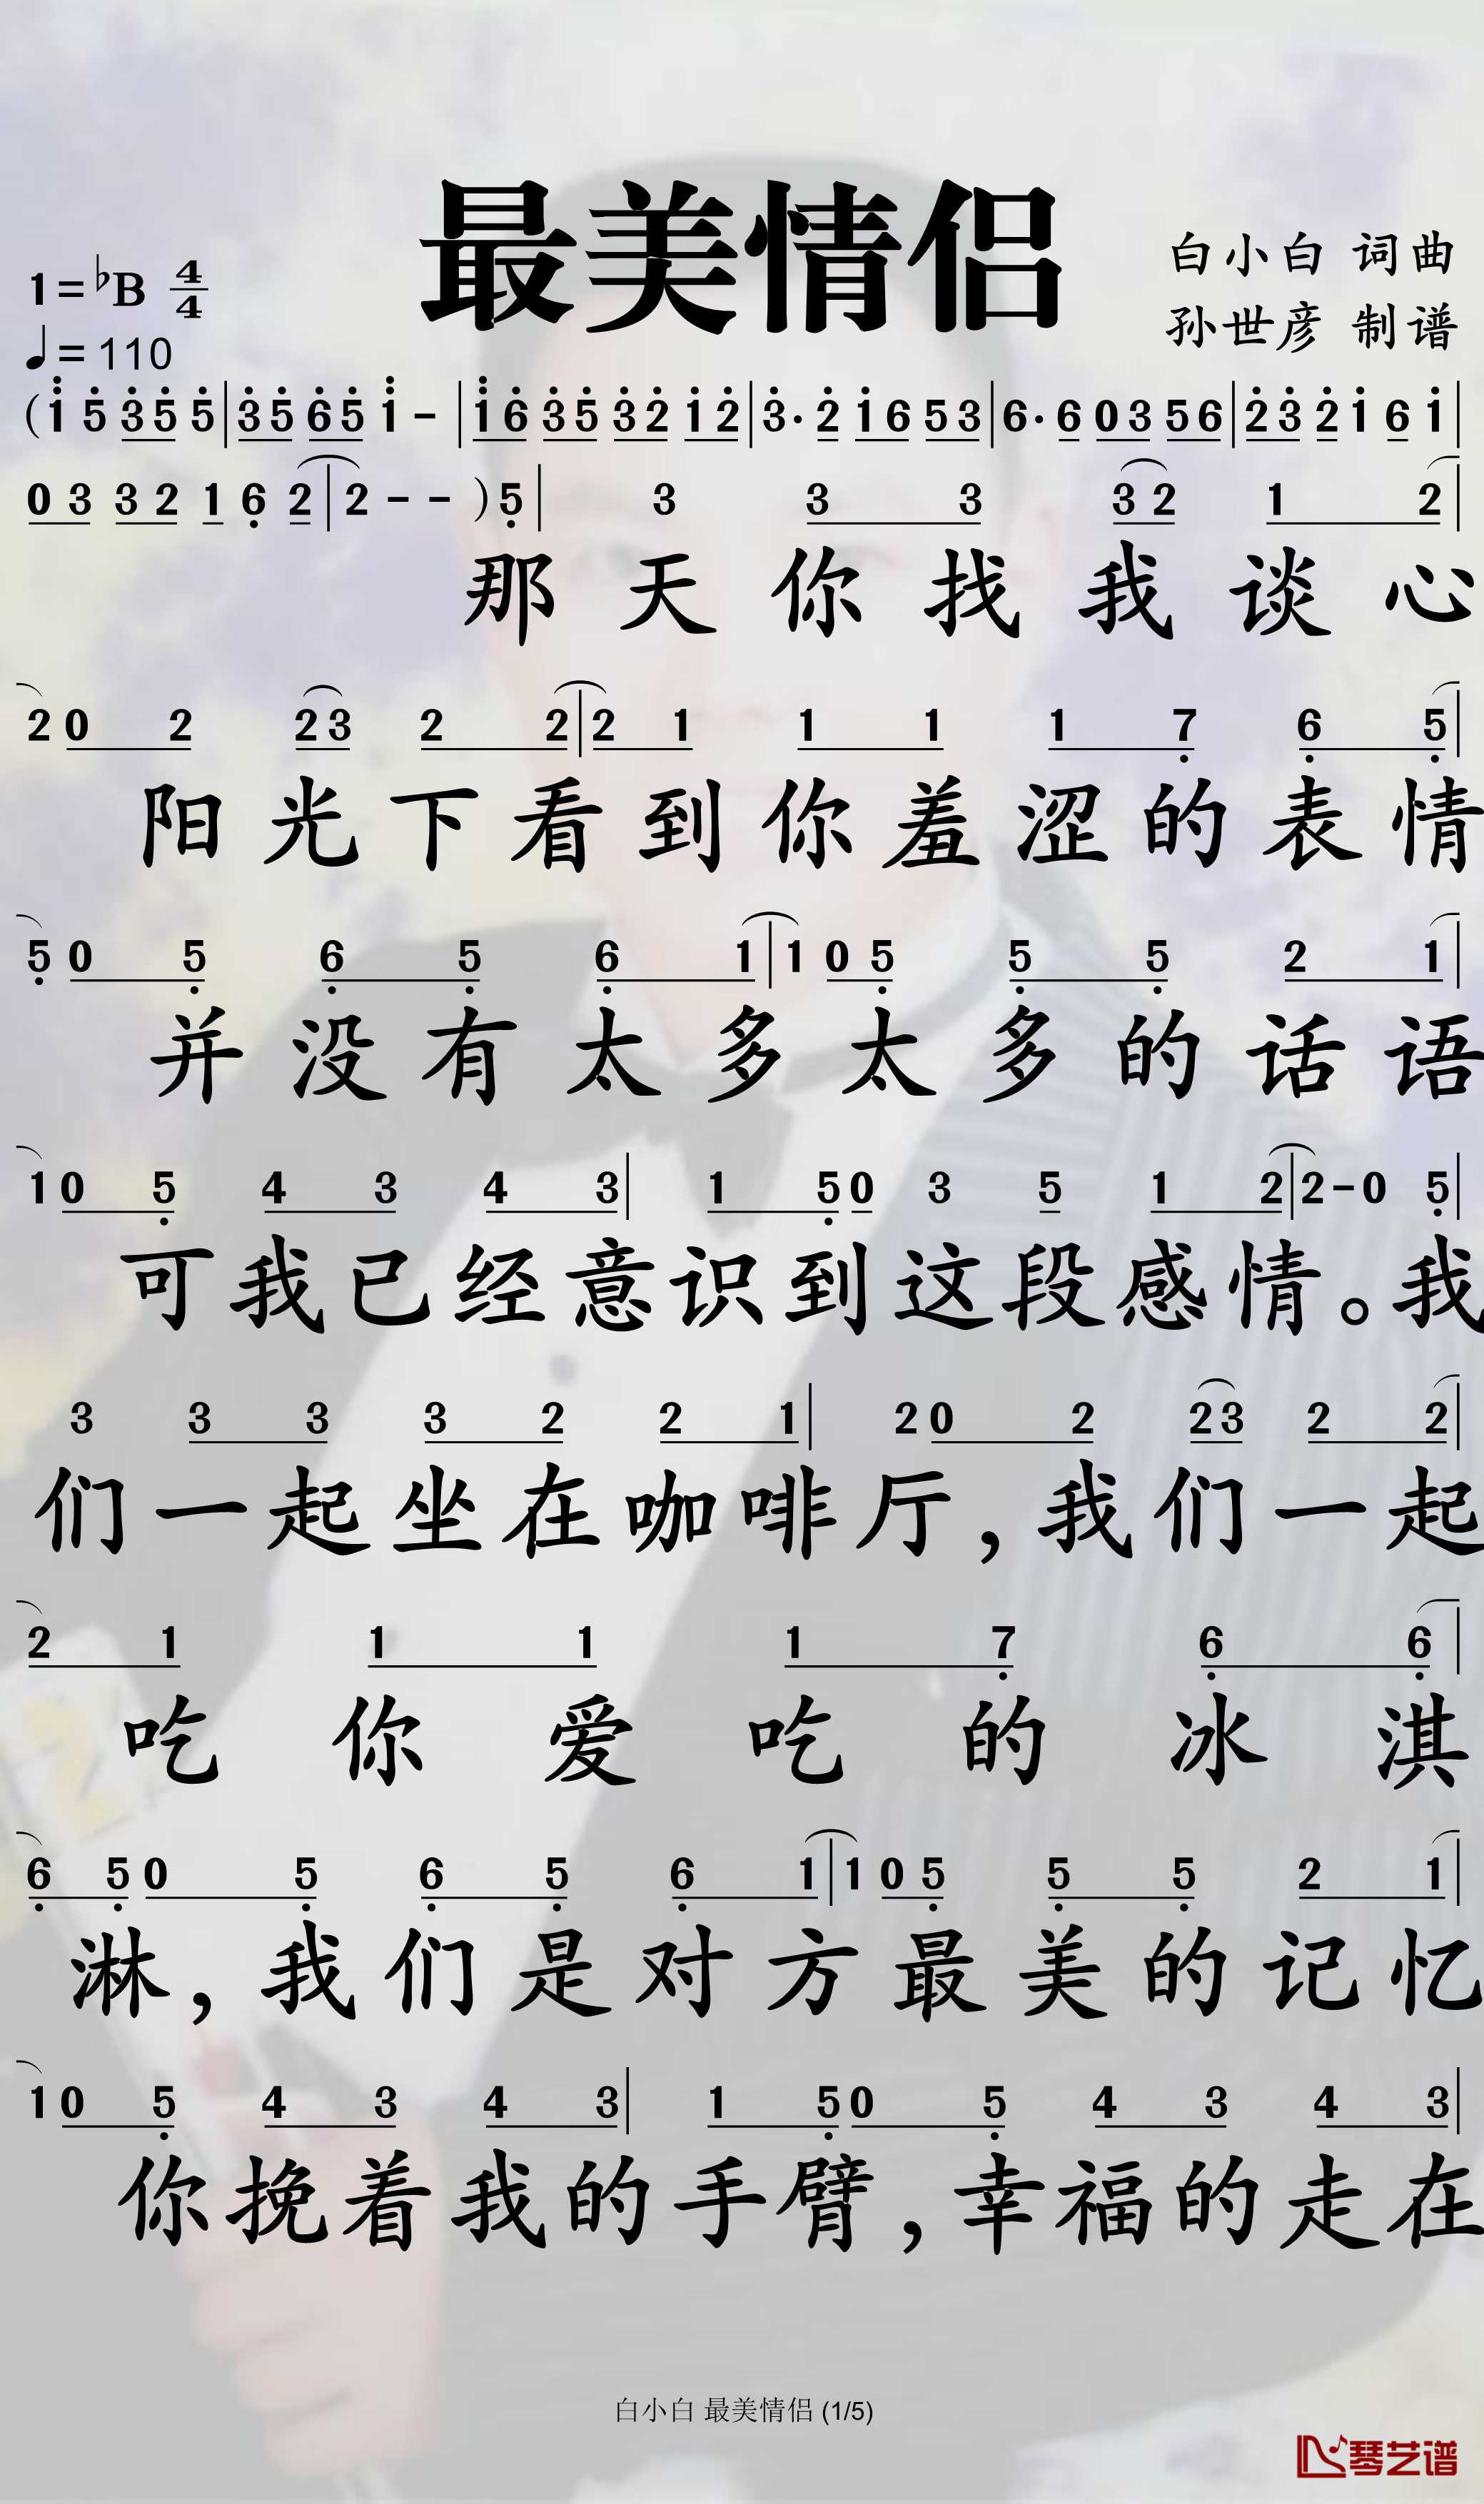 最美情侣
白小白 词曲
孙世彦 制谱
1=♭B 4/4
♩=110
(1 5 3 5 5|3 5 6 5 1 -|1 6 3 5 3 2 1 2|3· 2 1 6 5 3|6· 6 0 3 5 6|2 3 2 1 6 1|
0 3 3 2 1 6 2|2 - - )5| 3 3 3 3 2 1 2|
那天你找我谈心
2 0 2 2 3 2 2|2 1 1 1 1 7 6 5|
阳光下看到你羞涩的表情
5 0 5 6 5 6 1|1 0 5 5 5 2 1|
并没有太多太多的话语
1 0 5 4 3 4 3| 1 5 0 3 5 1 2|2 - 0 5|
可我已经意识到这段感情。我
3 3 3 3 2 2 1| 2 0 2 2 3 2 2|
们一起坐在咖啡厅,我们一起
2 1 1 1 1 7 6 6|
吃你爱吃的冰淇
6 5 0 5 6 5 6 1|1 0 5 5 5 2 1|
淋,我们是对方最美的记忆
1 0 5 4 3 4 3| 1 5 0 5 4 3 4 3|
你挽着我的手臂,幸福的走在
白小白 最美情侣 (1/5)
琴艺谱